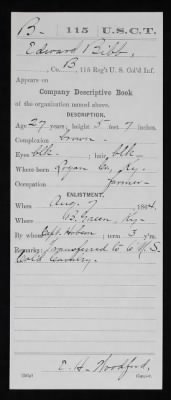 B- 115 U.S.C.T.
Edward Bibb,
, Co. B, 115 Reg't U. S. Col'd Inf.
Appears on
Company Descriptive Book
of the organization named above.
DESCRIPTION.
Age 27 years; height 5 feet 7 inches.
Complexion brown
Eyes blk. ; hair blk
Where born Logan Co, Ky.
Occupation Farmer
ENLISTMENT.
When Aug. 7, 1864.
Where B. Green, Ky.
By whom Capt. ; term 3 y'rs.
Remarks: Transferred to 6 U.S.
Cold Cavalry.
E. H. Woodford,
Copyist.